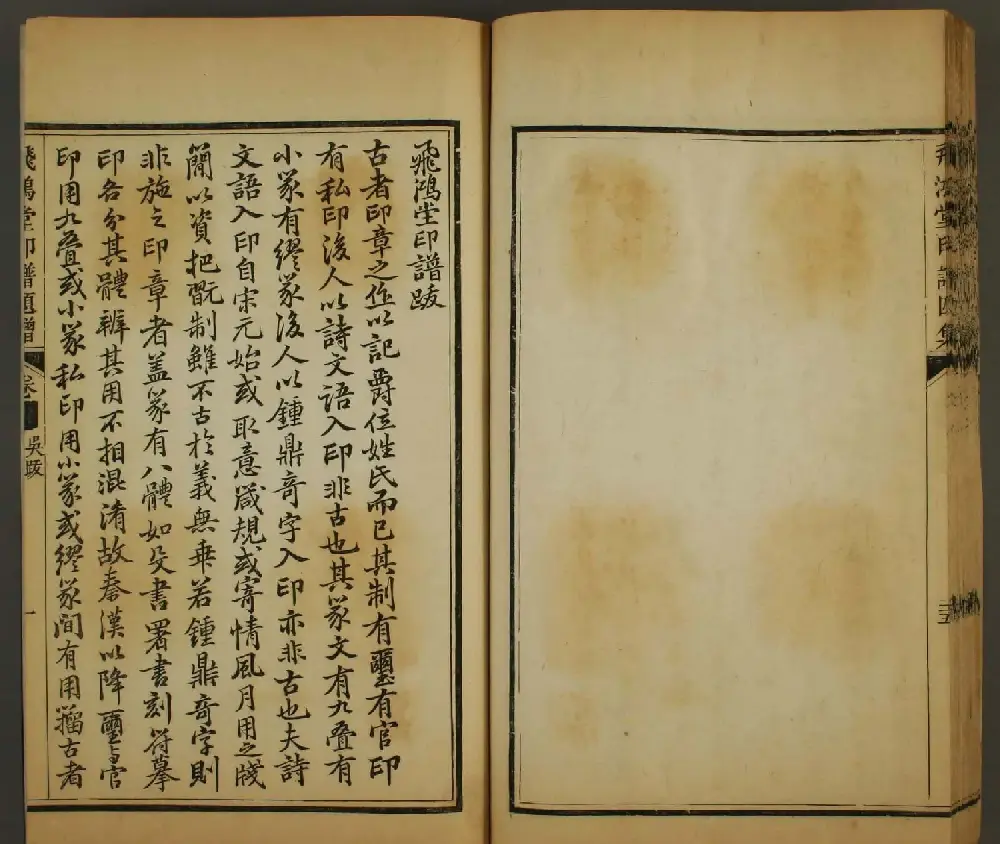 飛鴻堂印譜四集
三五
飛鴻堂印譜跋
古者印章之作以記爵位姓氏而已其制有璽有官印
有私印後人以詩文語入印非古也其篆文有九叠有
小篆有繆篆後人以鍾鼎奇字入印亦非古也夫詩
文語入印自宋元始或取意箴規或寄情風月用之牋
簡以資把翫制雖不古於義無乖若鍾鼎奇字則
非施之印章者盖篆有八體如殳書署書刻符摹
印各分其體辨其用不相混淆故秦漢以降璽官
印用九叠或小篆私印用小篆或繆篆間有用籀古者
飛鴻堂印譜題贈
吳跋
一